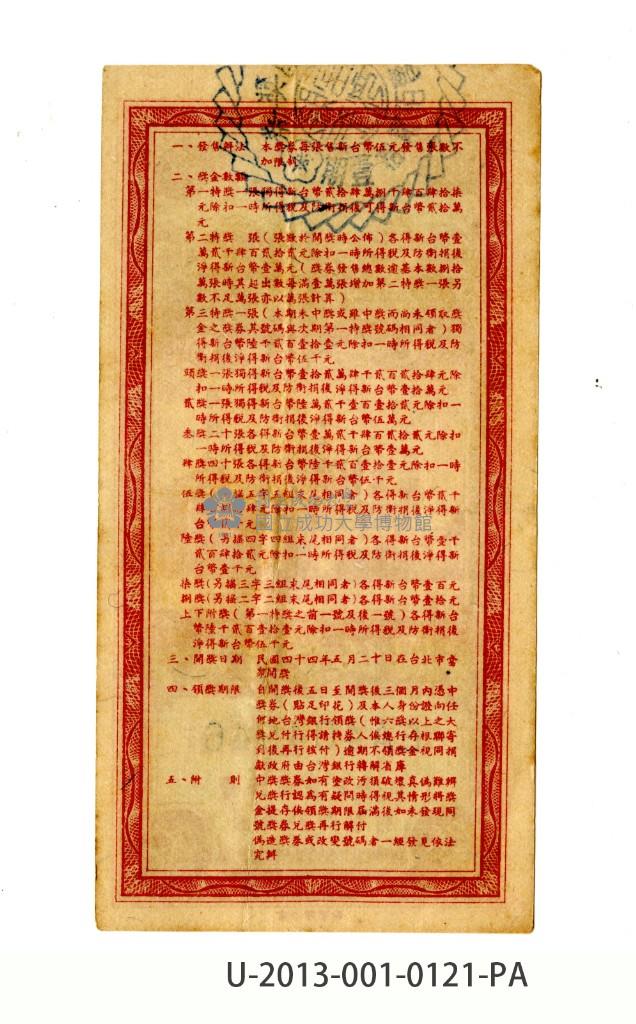 一、發售辦法　本獎券每張售新台幣伍元發售張數不
加限制
二、獎金數額
第一特獎一張獨得新台幣貳拾肆萬捌千肆百肆拾柒
元除扣一時所得稅及防衛捐後可得新台幣貳拾萬
元
第二特獎　張(張數於開獎時公佈)各得新台幣壹
萬貳千肆百貳拾貳元除扣一時所得稅及防衛捐後
淨得新台幣壹萬元(獎券發售總數逾基本數捌拾
萬張時其超出數每滿壹萬張增加第二特獎一張另
數不足萬張亦以萬張計算)
第三特獎一張(本期未中獎或雖中獎而尚未領取獎
金之獎券其號碼與次期第一特獎號碼相同者)獨
得新台幣陸千貳百壹拾壹元除扣一時所得稅及防
衛捐後淨得新台幣伍千元
頭獎一張獨得新台幣壹拾貳萬肆千貳百貳拾肆元除
扣一時所得稅及防衛捐後淨得新台幣壹拾萬元
貳獎一張獨得新台幣陸萬貳千壹百壹拾貳元除扣一
時所得稅及防衛捐後淨得新台幣伍萬元
叁獎二十張各得新台幣壹萬貳千肆百貳拾貳元除扣
一時所得稅及防衛捐後淨得新台幣壹萬元
肆獎四十張各得新台幣陸千貳百壹拾壹元除扣一時
所得稅及防衛捐後淨得新台幣伍千元
伍獎(另搖五字五組末尾相同者)各得新台幣貳千
肆
台
國立成功大學博物館
陸獎(另搖四字四組末尾相同者)各得新台幣壹千
貳百肆拾貳元除扣一時所得稅及防衛捐後淨得新
台幣壹千元
柒獎(另搖三字三組末尾相同者)各得新台幣壹百元
捌獎(另搖二字二組末尾相同者)各得新台幣貳拾元
上下附獎(第一特獎之前一號及後一號)各得新台
幣陸千貳百壹拾壹元除扣一時所得稅及防衛捐後
淨得新台幣伍千元
三、開獎日期　民國四十四年五月二十日在台北市當
眾開獎
四、領獎期限　自開獎後五日至開獎後三個月內憑中
獎券(貼足印花)及本人身份證向任
何地台灣銀行領獎(惟六獎以上之大
獎兌付行請持券人偕進行存根聯寄
到後再行核付)逾期不領獎金視同捐
獻政府由台灣銀行轉解省庫
五、附　則　中獎獎券如有塗改污損破壞真偽難辨
兌獎行認為有疑問時得視其情形將獎
金提存俟領獎期限屆滿後如未發現同
號獎券兌獎再行解付
偽造獎券或改變號碼者一經發見依法
究辦
U-2013-001-0121-PA